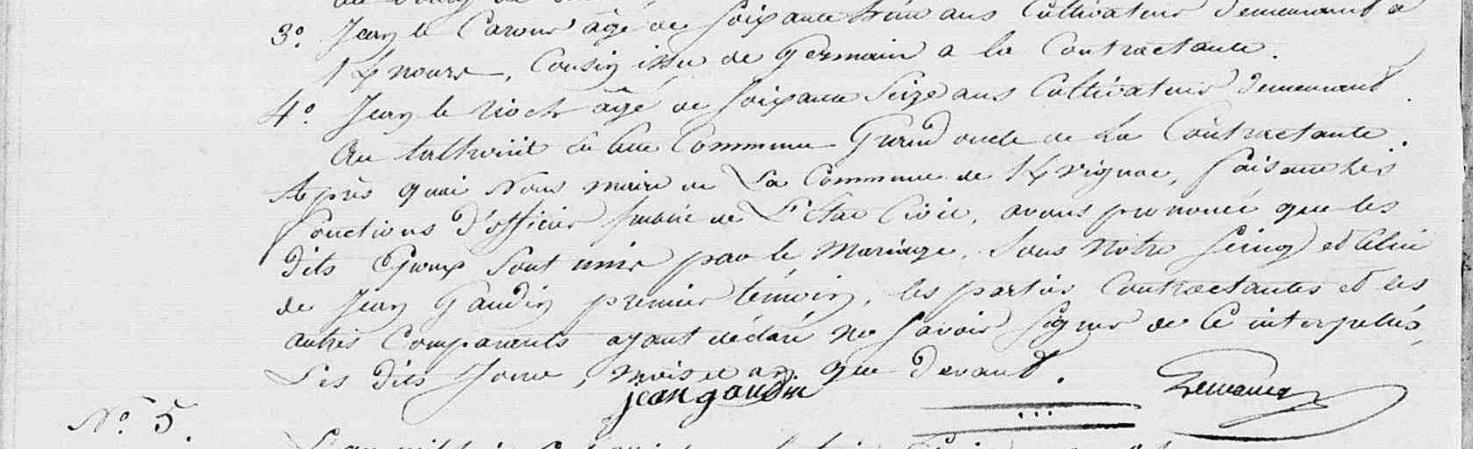 3.° Jean le Carour âgé de soixante trois ans Cultivateur demeurant à
Kynours, Cousin issu de Germain a la Contractante.
4.° Jean le rioch âgé de soixante seize ans Cultivateur demeurant
Au en cette Commune Grand oncle de La Contractante.
Après quoi Nous maire de La Commune de Kvignac, faisant les
fonctions d'officier public de L'Etat Civil, avons prononcé que les
dits Epoux sont unis par le Mariage. Sous Notre seing et Celui
de Jean Gaudin premier témoin, les parties Contractantes et les
autres Comparants ayant déclaré ne savoir signer de Ce interpellés,
Les dits Jour, mois et an que devant.
jean gaudin
N.° 5.